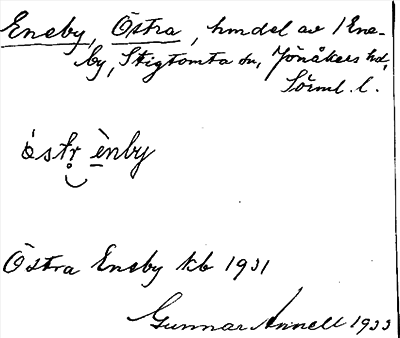 Eneby, Östra, hmdel av 1 Ene-
by, Stigtomta sn, Jönåkers hd,
Sörml. l.
östr ènby
Östra Eneby kb 1931
Gunnar Annell 1933